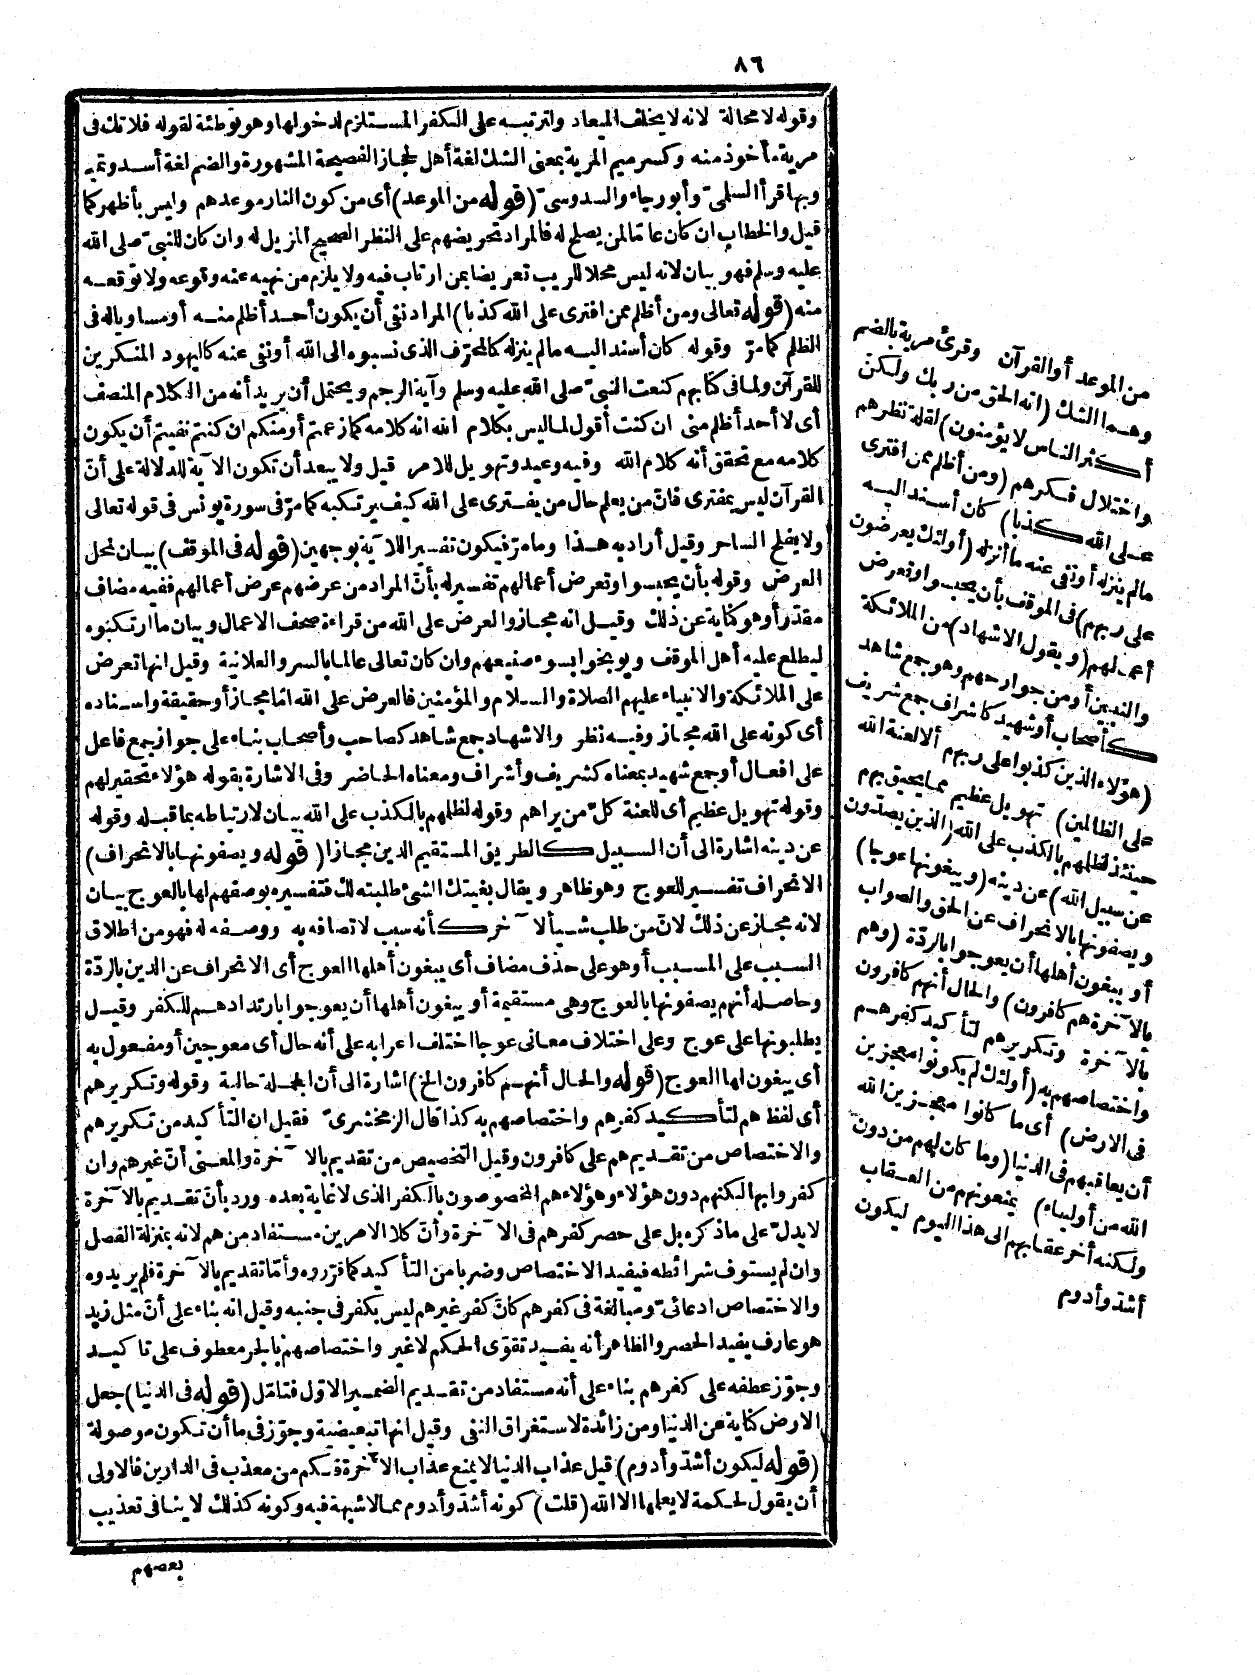 ٨٦
وقوله لا محالة لانه لا يخلف الميعاد ولترتبه على الكفر المستلزم لدخولها وهو توطئة لقوله فلا تك فى
مرية مأخوذ منه وكسر ميم المرية بمعنى الشك لغة أهل الحجاز الفصيحة المشهورة والضم لغة أسد وتميم
وبها قرأ السلمىّ وأبو رجاء والسدوسىّ (قوله من الموعد) أى من كون النار موعدهم وليس بأظهر كما
قيل والخطاب ان كان عامّا لمن يصلح له فالمراد تحريضهم على النظر الصحيح المزيل له وان كان للنبىّ صلى الله
عليه وسلم فهو بيان لانه ليس محلا للريب تعريضا بمن ارتاب فيه ولا يلزم من نهيه عنه وقوعه ولا توقعه
منه (قوله تعالى ومن أظلم ممن افترى على الله كذبا) المراد نفى أن يكون أحد أظلم منه أو مساويا له فى
الظلم كما مرّ وقوله كان أسند اليه ما لم ينزله كالمحرّف الذى نسبوه الى الله أو نفى عنه كاليهود المنكرين
للقرآن ولما فى كتابهم كنعت النبىّ صلى الله عليه وسلم وآية الرجم ويحتمل أن يريد أنه من الكلام المنصف
أى لا أحد أظلم منى ان كنت أقول لما ليس بكلام الله انه كلامه كما زعمتم أو منكم ان كنتم نفيتم أن يكون
كلامه مع تحقق أنه كلام الله وفيه وعيد وتهويل للامر قيل ولا يبعد أن تكون الآية للدلالة على أنّ
القرآن ليس بمفترى فانّ من يعلم حال من يفترى على الله كيف يرتكبه كما مرّ فى سورة يونس فى قوله تعالى
ولا يفلح الساحر وقيل أراد به هذا وما مرّ فيكون تفسيرا للآية بوجهين (قوله فى الموقف) بيان لمحل
العرض وقوله بأن يحبسوا وتعرض أعمالهم تفسير له بأنّ المراد من عرضهم عرض أعمالهم ففيه مضاف
مقدّر أو هو كناية عن ذلك وقيل انه مجاز والعرض على الله من قراءة صحف الاعمال وبيان ما ارتكبوه
ليطلع عليه أهل الموقف ويوبخوا بسوء صنيعهم وان كان تعالى عالما بالسر والعلانية وقيل انها تعرض
على الملائكة والانبياء عليهم الصلاة والسلام والمؤمنين فالعرض على الله امّا مجاز أو حقيقة واسناده
أى كونه على الله مجاز وفيه نظر والاشهاد جمع شاهد كصاحب وأصحاب بناء على جواز جمع فاعل
على افعال أو جمع شهيد بمعناه كشريف وأشراف ومعناه الحاضر وفى الاشارة بقوله هؤلاء تحقير لهم
وقوله تهويل عظيم أى للعنة كلّ من يراهم وقوله لظلمهم بالكذب على الله بيان لارتباطه بما قبله وقوله
عن دينه اشارة الى أن السبيل كالطريق المستقيم الدين مجازا (قوله ويصفونها بالانحراف)
الانحراف تفسير للعوج وهو ظاهر ويقال بغيتك الشئ طلبته لك فتفسيره بوصفهم لها بالعوج بيان
لانه مجاز عن ذلك لانّ من طلب شيأ لآخر كأنه سبب لاتصافه به ووصفه له فهو من اطلاق
السبب على المسبب أو هو على حذف مضاف أى يبغون أهلها العوج أى الانحراف عن الدين بالردّة
وحاصله أنهم يصفونها بالعوج وهى مستقيمة أو يبغون أهلها أن يعوجوا بارتدادهم للكفر وقيل
يطلبونها على عوج وعلى اختلاف معانى عوجا اختلف اعرابه على أنه حال أى معوجين أو مفعول به
أى يبغون لها العوج (قوله والحال أنهم كافرون الخ) اشارة الى أن الجملة حالية وقوله وتكريرهم
أى لفظ هم لتأكيد كفرهم واختصاصهم به كذا قال الزمخشرىّ فقيل ان التأكيد من تكريرهم
والاختصاص من تقديم هم على كافرون وقيل التخصيص من تقديم بالآخرة والمعنى أنّ غيرهم وان
كفروا بها لكنهم دون هؤلاء وهؤلاء هم المخصوصون بالكفر الذى لا غاية بعده ورد بأنّ تقديم بالآخرة
لا يدلّ على ما ذكره بل على حصر كفرهم فى الآخرة وأنّ كلا الامرين مستفاد من هم لانه بمنزلة الفصل
وان لم يستوف شرائطه فيفيد الاختصاص وضربا من التأكيد كما قرّروه وأمّا تقديم بالآخرة فلم يريدوه
والاختصاص ادعائىّ ومبالغة فى كفرهم كانّ كفر غيرهم ليس بكفر فى جنبه وقيل انه بناء على أنّ مثل زيد
هو عارف يفيد الحصر والظاهر أنه يفيد تقوّى الحكم لا غير واختصاصهم بالجر معطوف على تاكيد
وجوّز عطفه على كفرهم بناء على أنه مستفاد من تقديم الضمير الاوّل فتامّل (قوله فى الدنيا) جعل
الارض كناية عن الدنيا ومن زائدة لاستغراق النفى وقيل انها تبعيضية وجوّز فى ما أن تكون موصولة
(قوله ليكون أشدّ وأدوم) قيل عذاب الدنيا لا يمنع عذاب الآخرة فكم من معذب فى الدارين فالاولى
أن يقول لحكمة لا يعلمها الا الله (قلت) كونه أشدّ وأدوم مما لا شبهة فيه وكونه كذلك لا ينافى تعذيب
بعضهم
من الموعد أو القرآن وقرئ مرية بالضم
وهما الشك (انه الحق من ربك ولكن
أكثر الناس لا يؤمنون) لقلة نظرهم
واختلال فكرهم (ومن أظلم ممن افترى
على الله كذبا) كان أسند اليه
ما لم ينزله أو نفى عنه ما أنزله (أولئك يعرضون
على ربهم) فى الموقف بأن يحبسوا وتعرض
أعمالهم (ويقول الاشهاد) من الملائكة
والنبيين أو من جوارحهم وهو جمع شاهد
كأصحاب أو شهيد كاشراف جمع شريف
(هؤلاء الذين كذبوا على ربهم ألا لعنة الله
على الظالمين) تهويل عظيم مما يحيق بهم
حينئذ لظلمهم بالكذب على الله (الذين يصدّون
عن سبيل الله) عن دينه (ويبغونها عوجا)
ويصفونها بالانحراف عن الحق والصواب
أو يبغون أهلها أن يعوجوا بالردّة (وهم
بالآخرة هم كافرون) والحال أنهم كافرون
بالآخرة وتكريرهم لتأكيد كفرهم
واختصاصهم به (أولئك لم يكونوا معجزين
فى الارض) أى ما كانوا معجزين الله
أن يعاقبهم فى الدنيا (وما كان لهم من دون
الله من أولياء) يمنعونهم من العقاب
ولكنه أخر عقابهم الى هذا اليوم ليكون
أشدّ وأدوم